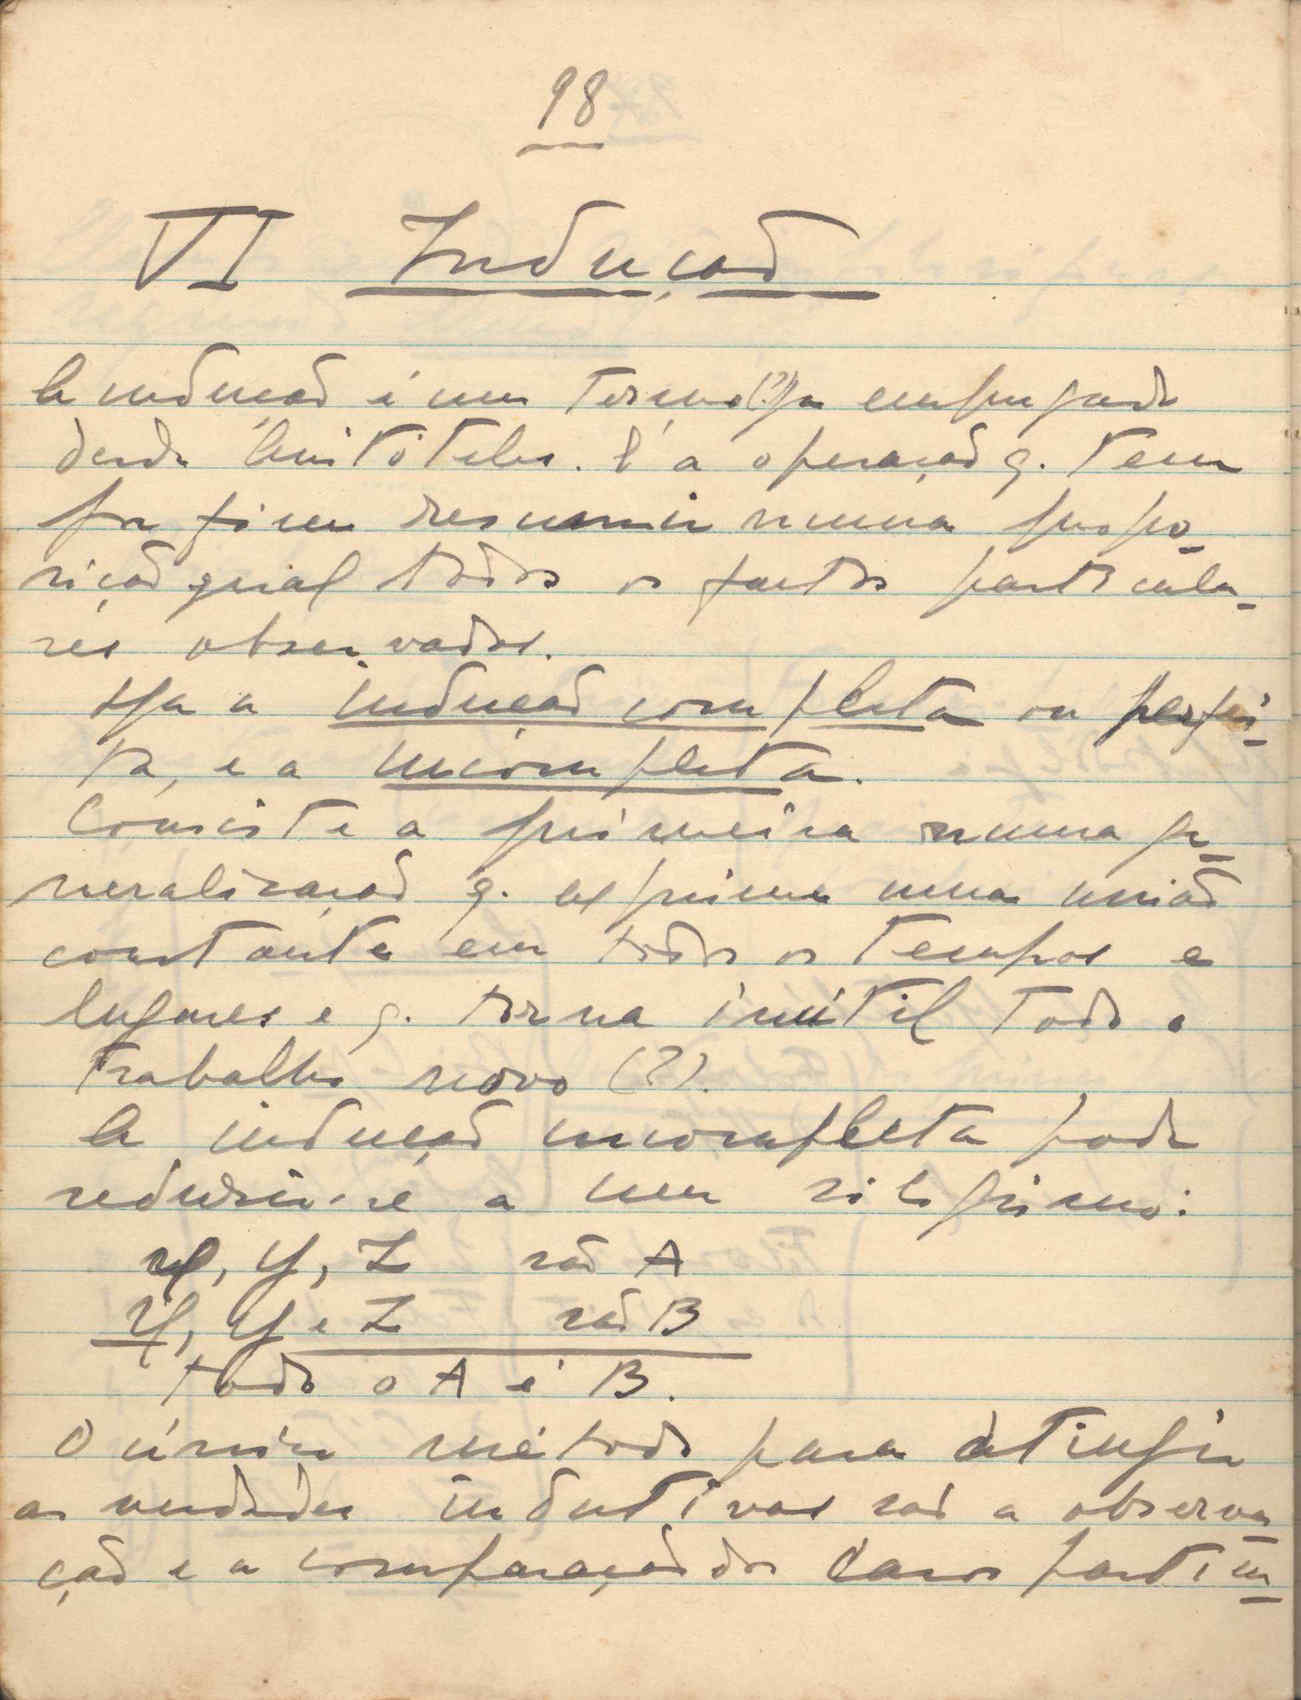 98
VI Indução
A indução é um termo (?) já empregado
desde Aristóteles. É a operação q. tem
por fim resumir numa propo-
sição geral todos os factos particula-
res observados.
Há a indução completa ou perfei-
ta, e a incompleta.
Consiste a primeira numa ge-
neralização q. exprime uma união
constante em todos os tempos e
lugares e q. torna inútil todo o
trabalho novo (?).
A indução incompleta pode
reduzir-se a um silogismo:
X, Y, Z são A
X, Y e Z são B
todo o A é B.
O único método para atingir
as verdades indutivas são a observa
ção e a comparação dos casos particu-